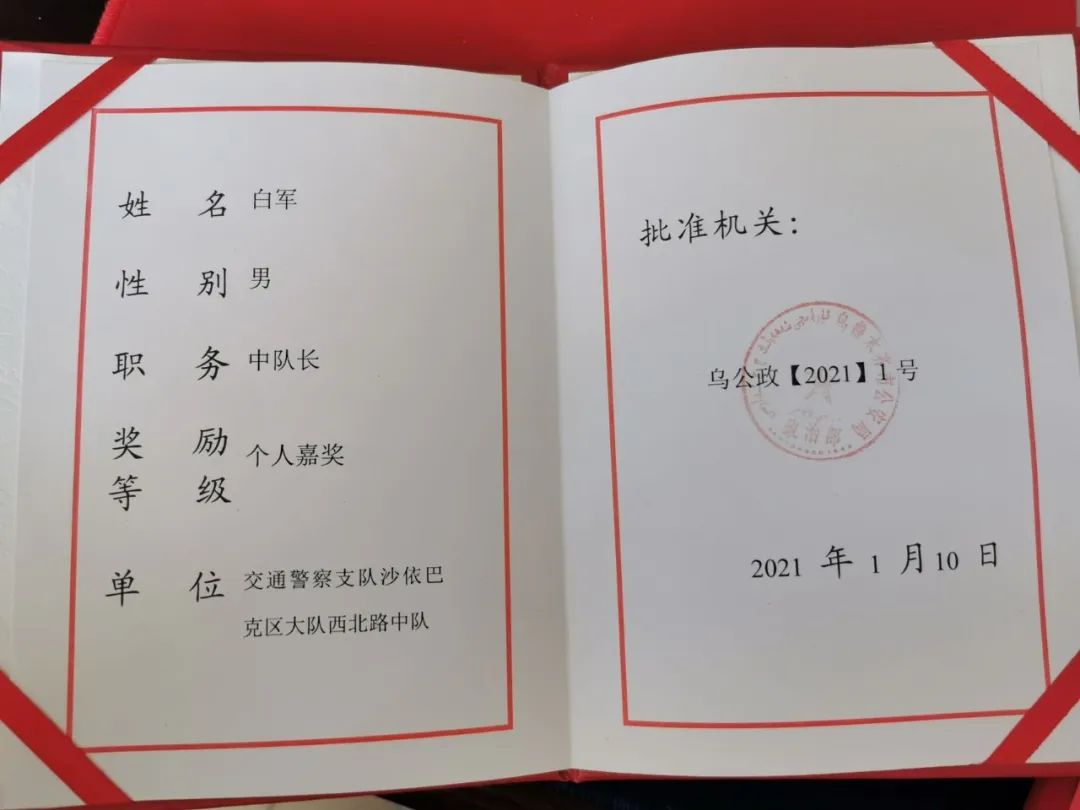 姓 名 白军
性 别 男
职 务 中队长
奖 励
等 级 个人嘉奖
单 位 交通警察支队沙依巴
克区大队西北路中队
批准机关：
乌鲁木齐市公安局
乌公政【2021】1号
2021 年 1 月 10 日